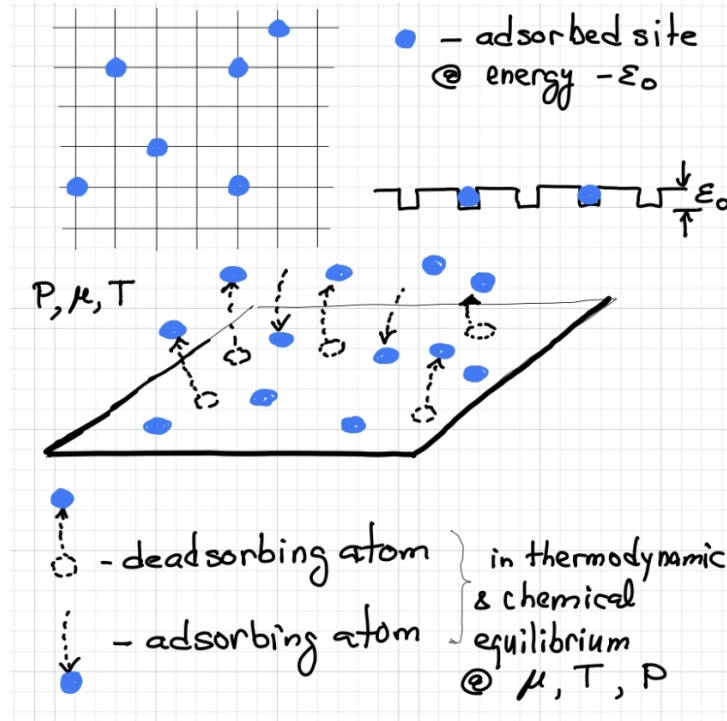 - adsorbed site
@ energy -ε₀
ε₀
P, μ, T
- deadsorbing atom
- adsorbing atom
in thermodynamic
& chemical
equilibrium
@ μ, T, P